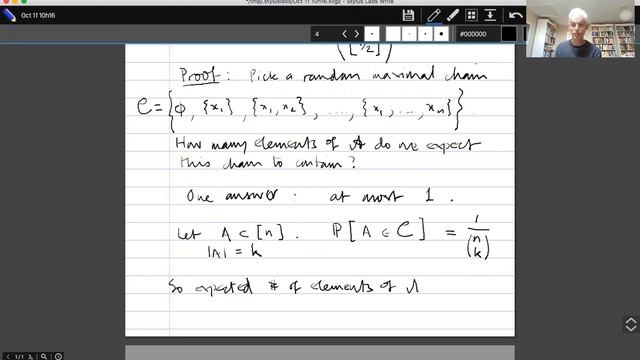 */tmp/styluslabs/Oct 11 10h16.svgz - Stylus Labs Write
Oct 11 10h16
4
#000000
(⌊n/2⌋)
Proof: Pick a random maximal chain
C = {φ, {x1}, {x1, x2}, ...., {x1, ..., xn}}.
How many elements of A do we expect
this chain to contain?
One answer: at most 1.
Let A ⊂ [n]. P[A ∈ C] = 1/(n k)
|A| = k
So expected # of elements of A
1/1